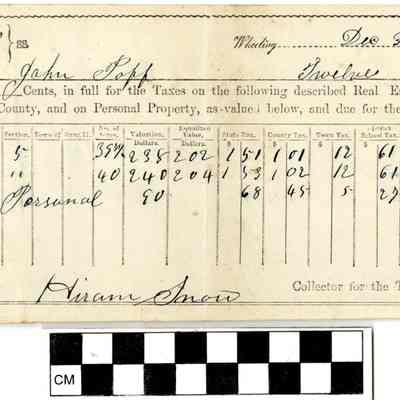 ss.
Wheeling, Dec
John Popp Twelve
Cents, in full for the Taxes on the following described Real
County, and on Personal Property, as valued below, and due for the
Section. Town or Num. Il. No. of Acres. Valuation, Dollars. Equalized Value, Dollars. State Tax. County Tax. Town Tax. School Tax.
$ $ $ $
5 39¾ 238 202 1 51 1 01 12 61
" 40 240 204 1 53 1 02 12 61
Personal 90 68 45 5 27
Hiram Snow Collector for the
CM